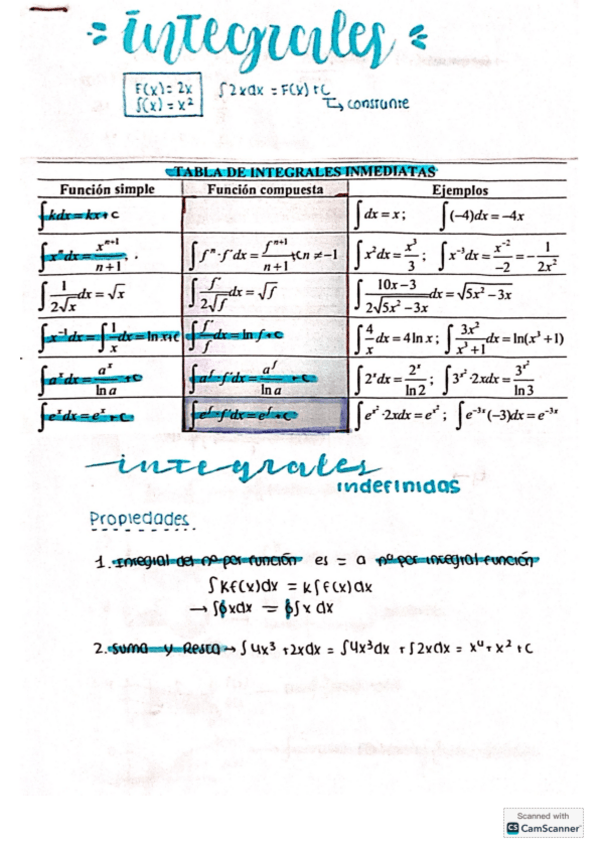 integrales
F(x)= 2x
f(x) = x² ∫2xdx = F(x) + C
↳ constante
TABLA DE INTEGRALES INMEDIATAS
Función simple Función compuesta Ejemplos
∫kdx = kx + c ∫dx = x; ∫(-4)dx = -4x
∫xⁿdx = xⁿ⁺¹/n+1, ∫fⁿ·f'dx = fⁿ⁺¹/n+1 +C n ≠ -1 ∫x²dx = x³/3; ∫x⁻³dx = x⁻²/-2 = -1/2x²
∫1/2√x dx = √x ∫f'/2√f dx = √f ∫10x-3/2√5x²-3x dx = √5x²-3x
∫x⁻¹dx = ∫1/x dx = ln x+C ∫f'/f dx = ln f + C ∫4/x dx = 4 ln x; ∫3x²/x³+1 dx = ln(x³+1)
∫aˣdx = aˣ/ln a +C ∫aᶠ·f'dx = aᶠ/ln a + C ∫2ˣdx = 2ˣ/ln 2; ∫3^x²·2xdx = 3^x²/ln 3
∫eˣdx = eˣ + C ∫eᶠ·f'dx = eᶠ + C ∫e^x²·2xdx = e^x²; ∫e⁻³ˣ(-3)dx = e⁻³ˣ
integrales
indefinidas
Propiedades
1. Integral del nº por función es = a nº por integral función
∫Kf(x)dx = K∫f(x)dx
→ ∫6xdx = 6∫x dx
2. Suma y Resta → ∫4x³ + 2xdx = ∫4x³dx + ∫2xdx = x⁴ + x² + C
Scanned with
CS CamScanner